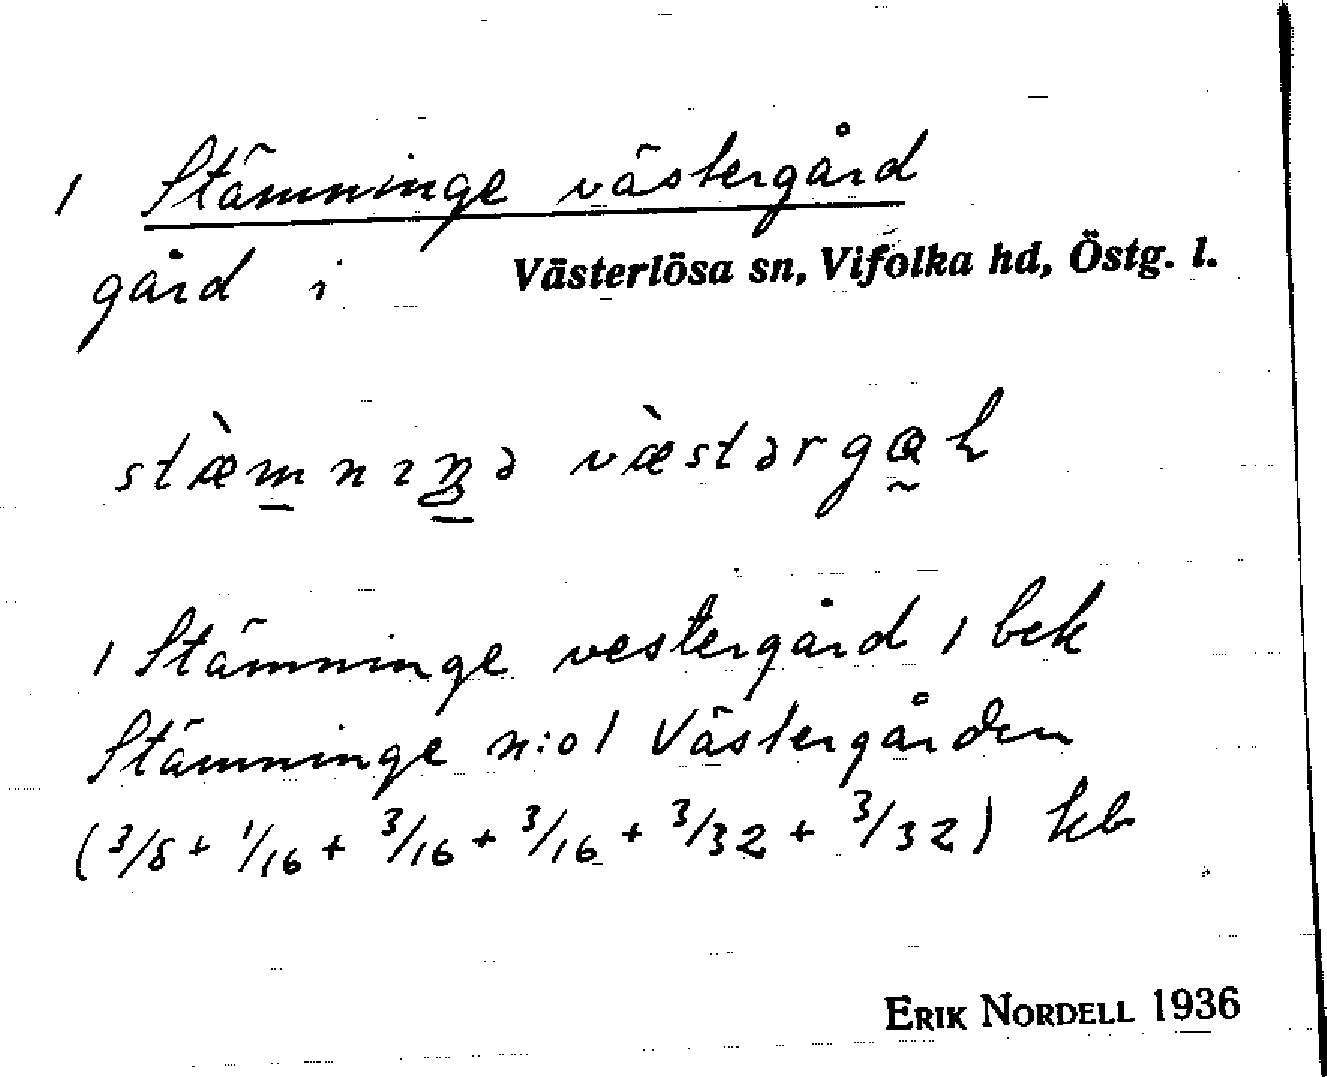 / Stämninge västergård
gård i Västerlösa sn, Vifolka hd, Östg. l.
stæ̀m̲nıŋ̲ə væ̀stərgɑ̰h
/ Stämninge vestergård / bek
Stämninge n:o 1 Västergården
(3/8 + 1/16 + 3/16 + 3/16 + 3/32 + 3/32) kb
ERIK NORDELL 1936